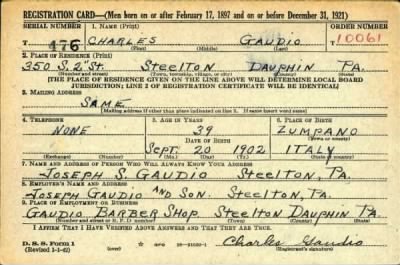 REGISTRATION CARD—(Men born on or after February 17, 1897 and on or before December 31, 1921)
SERIAL NUMBER 1. NAME (Print) ORDER NUMBER
T 476 CHARLES GAUDIO T 10061
(First) (Middle) (Last)
2. PLACE OF RESIDENCE (Print)
350 S. 2nd St. STEELTON DAUPHIN PA.
(Number and street) (Town, township, village, or city) (County) (State)
[THE PLACE OF RESIDENCE GIVEN ON THE LINE ABOVE WILL DETERMINE LOCAL BOARD
JURISDICTION; LINE 2 OF REGISTRATION CERTIFICATE WILL BE IDENTICAL]
3. MAILING ADDRESS
SAME
[Mailing address if other than place indicated on line 2. If same insert word same]
4. TELEPHONE 5. AGE IN YEARS 6. PLACE OF BIRTH
NONE 39 ZUMPANO
DATE OF BIRTH (Town or county)
SEPT. 20 1902 ITALY
(Exchange) (Number) (Mo.) (Day) (Yr.) (State or country)
7. NAME AND ADDRESS OF PERSON WHO WILL ALWAYS KNOW YOUR ADDRESS
JOSEPH S. GAUDIO STEELTON, PA.
8. EMPLOYER'S NAME AND ADDRESS
JOSEPH GAUDIO AND SON. STEELTON, PA.
9. PLACE OF EMPLOYMENT OR BUSINESS
GAUDIO BARBER SHOP STEELTON DAUPHIN PA.
(Number and street or R. F. D. number) (Town) (County) (State)
I AFFIRM THAT I HAVE VERIFIED ABOVE ANSWERS AND THAT THEY ARE TRUE.
D. S. S. Form 1
(Revised 1-1-42) (over) Charles Gaudio
(Registrant's signature)